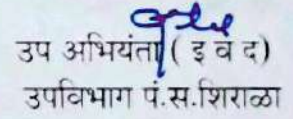 उप अभियंता ( इ व द)
उपविभाग पं.स.शिराळा